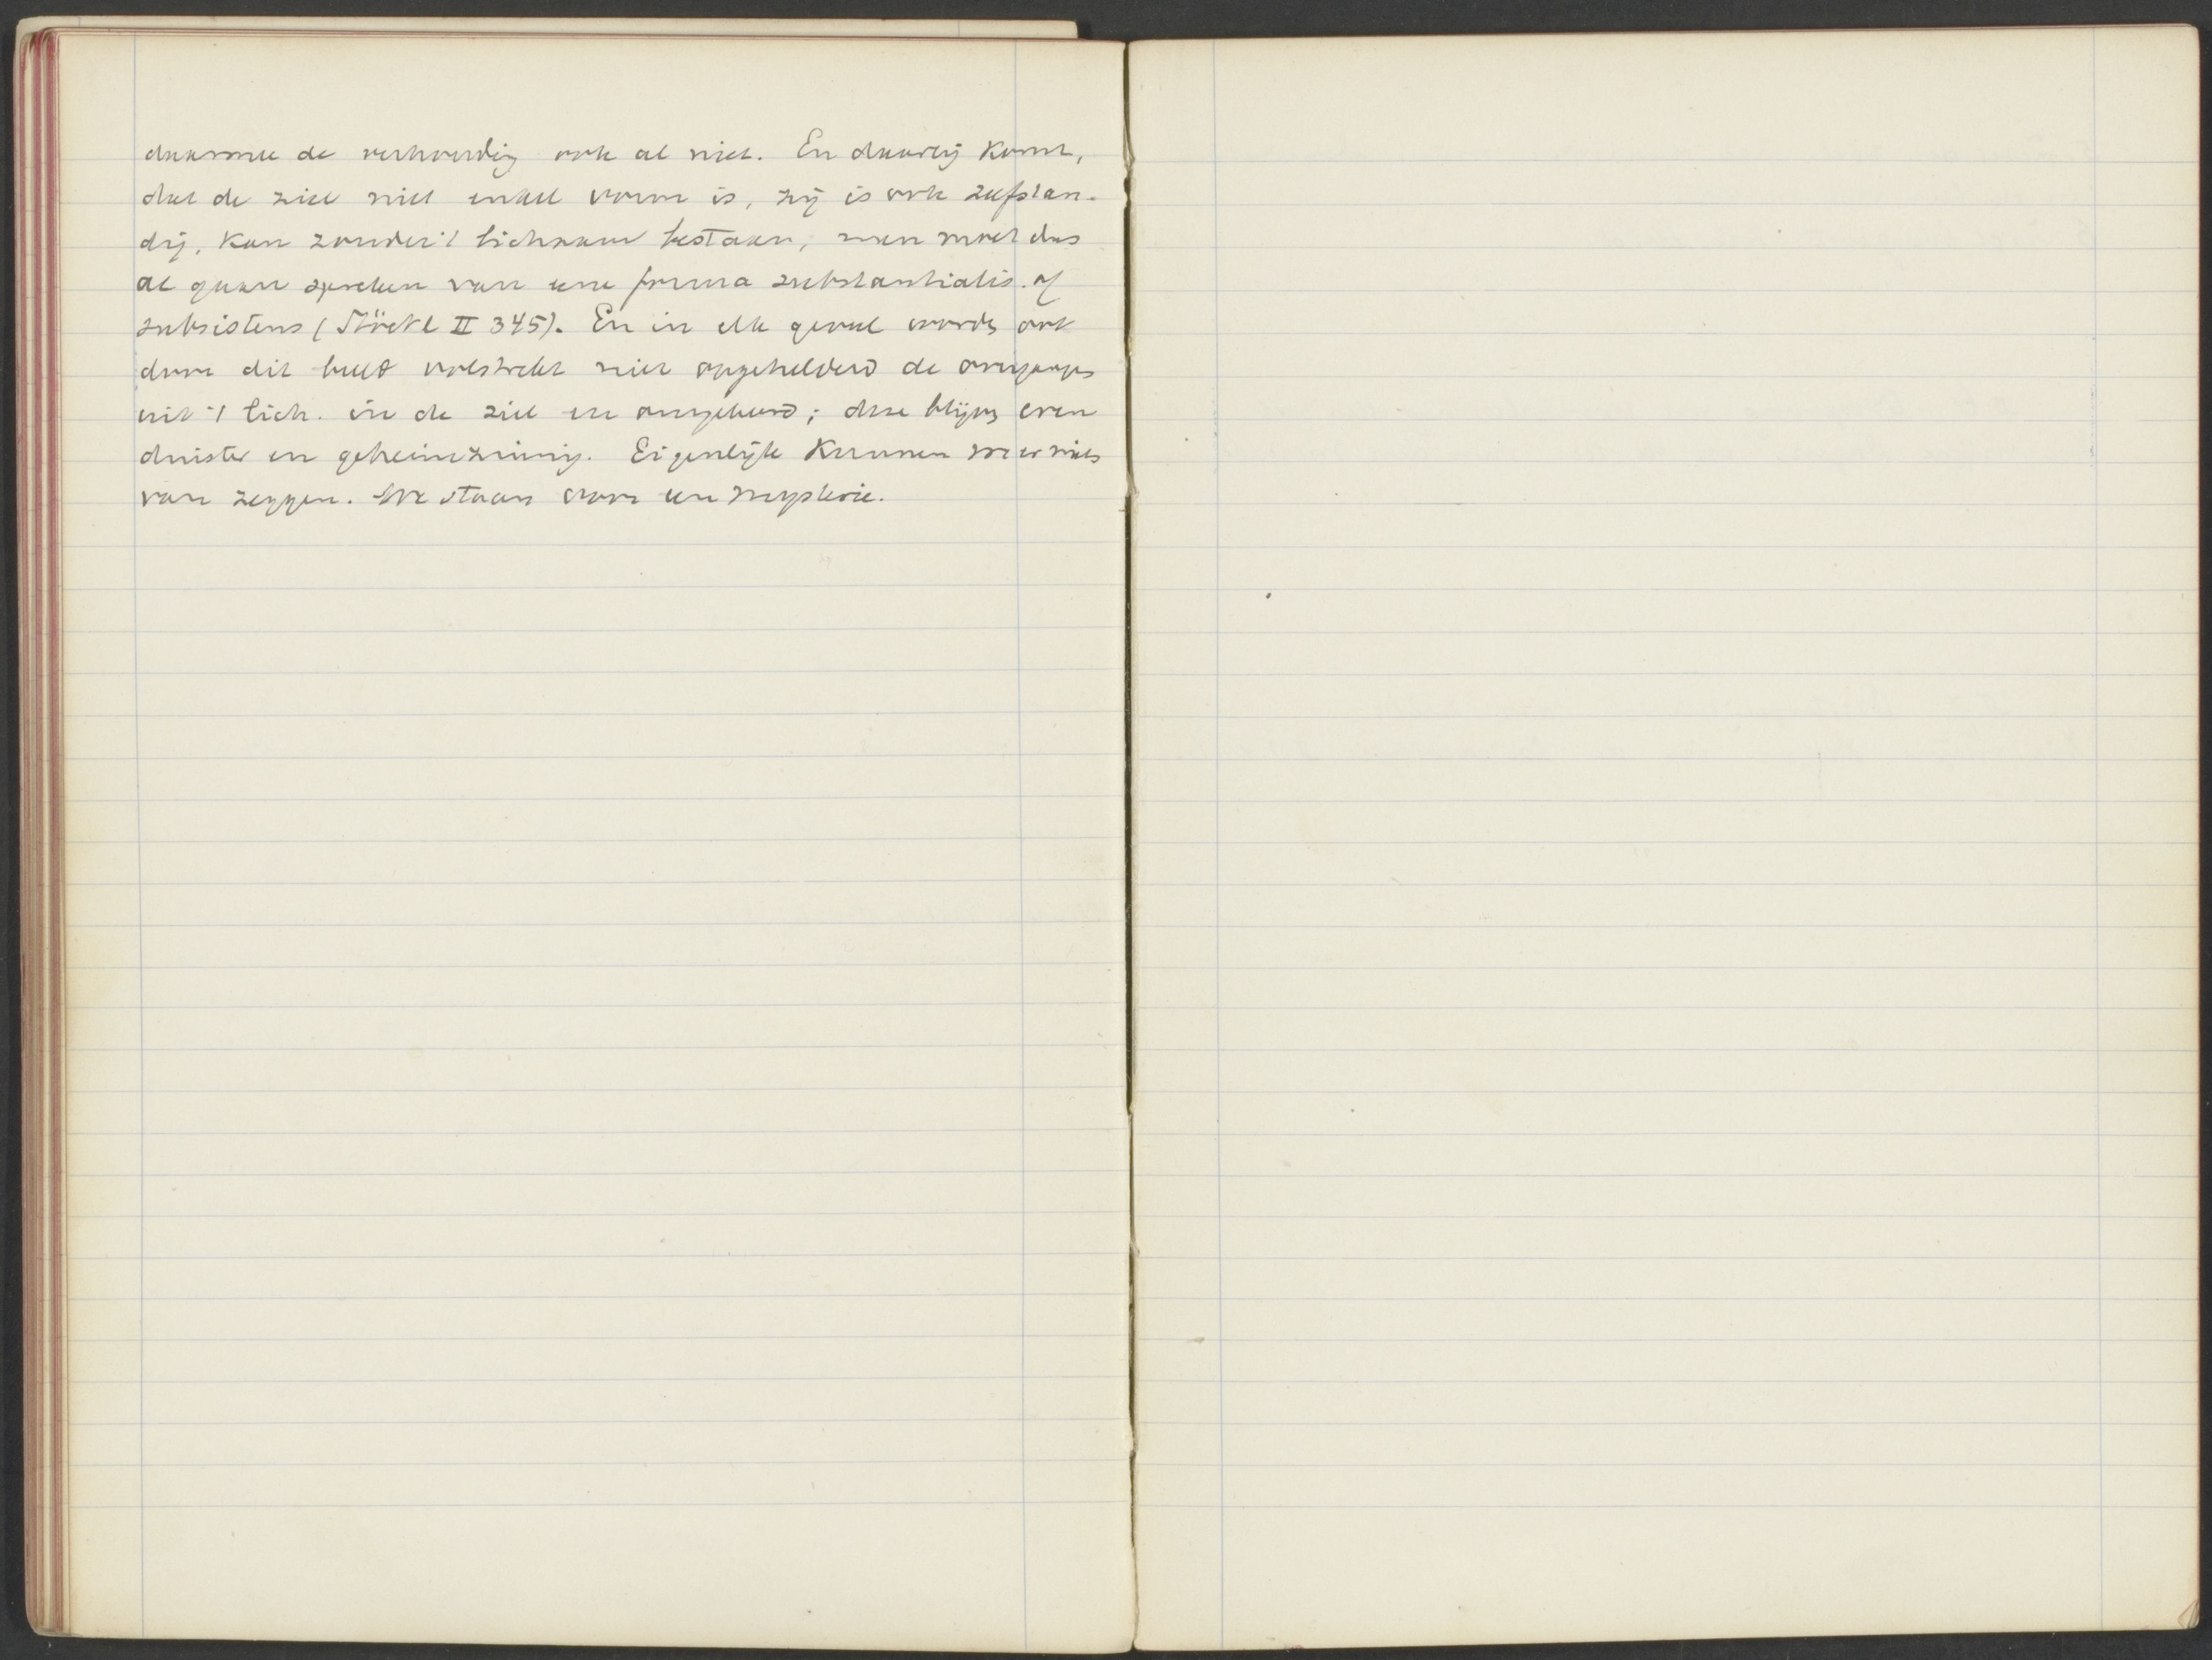 daarmee de verhouding ook al niet. En daarbij komt,
dat de ziel niet enkel vorm is, zij is ook zelfstan-
dig, kan zonder 't lichaam bestaan, men moet dus
al gaan spreken van een forma substantialis of
subsistens (Stöckl II 345). En in elk geval wordt ook
door dit beeld volstrekt niet opgehelderd de overgang
uit 't lich. in de ziel en omgekeerd; deze blijft even
duister en geheimzinnig. Eigenlijk kunnen we er niets
van zeggen. We staan voor een mysterie.